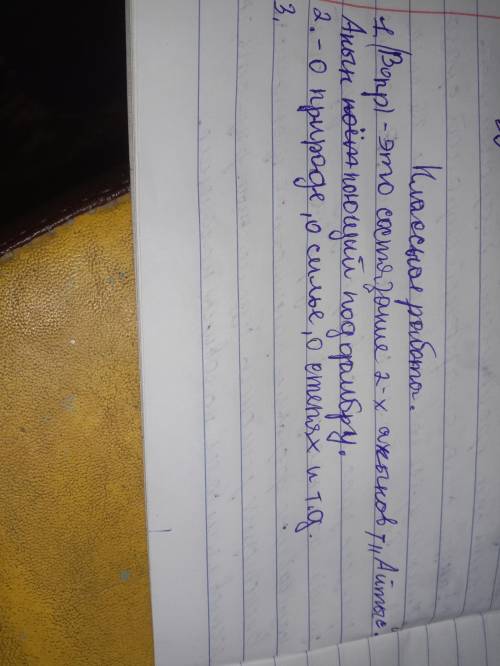 Классная работа.
1. (Вопр) - это состязание 2-х акынов, „Айтыс"
Акын поющий под домбру.
2. - О природе, о семье, о степях и т.д.
3.